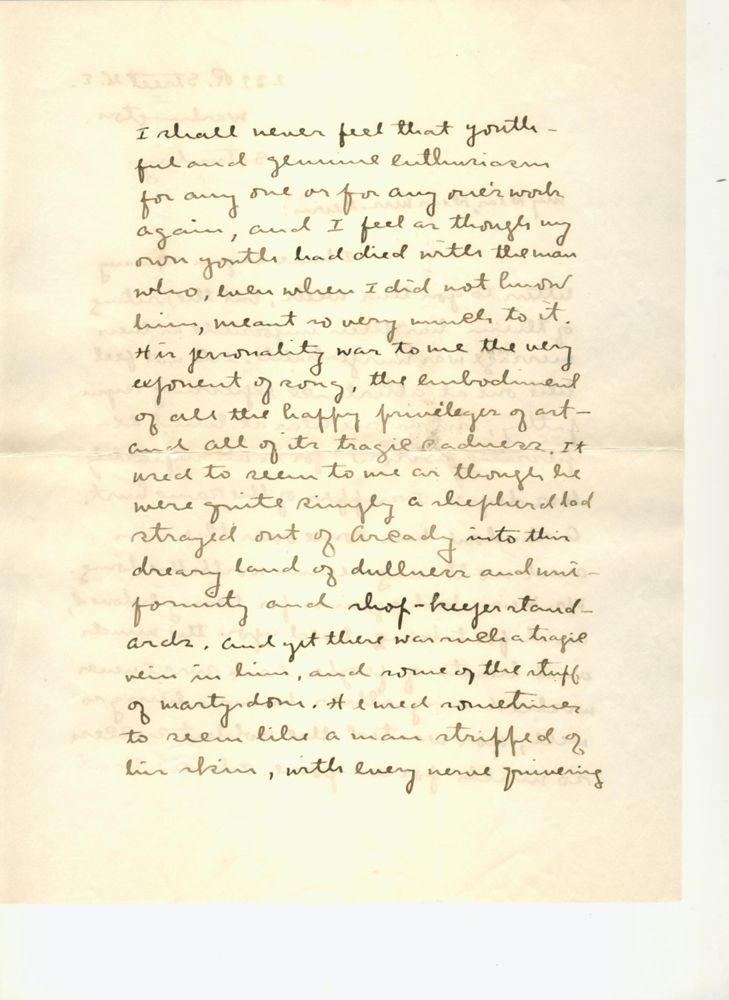 I shall never feel that youth-
ful and genuine enthusiasm
for any one or for any one's work
again, and I feel as though my
own youth had died with the man
who, even when I did not know
him, meant so very much to it.
His personality was to me the very
exponent of song, the embodiment
of all the happy privileges of art—
and all of its tragic sadness. It
used to seem to me as though he
were quite simply a shepherd lad
strayed out of Arcady into this
dreary land of dullness and uni-
formity and shop-keeper stand-
ards. And yet there was such a tragic
vein in him, and some of the stuff
of martyrdom. He used sometimes
to seem like a man stripped of
his skin, with every nerve quivering